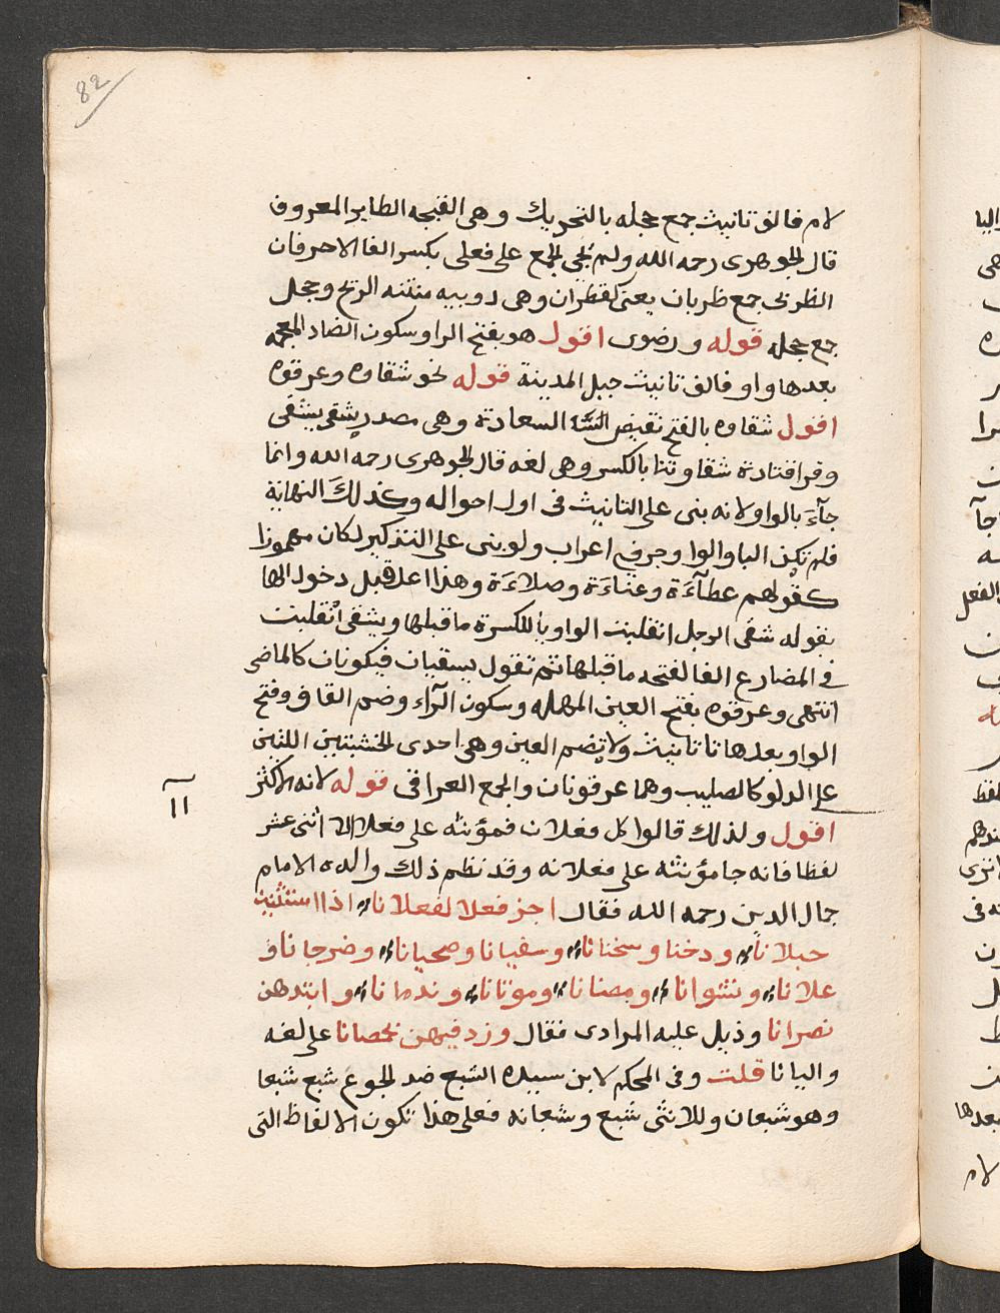 82
لام فالف تانيث جمع حجله بالتحريك وهى القبجه الطاير المعروف
قال الجوهرى رحمه الله ولم يجى الجمع على فعلى بكسر الفا الاحرفان
الظربى جمع ظربان يعنى كقطران وهى دويبيه منتنه الريح وحجلى
جمع حجله قوله ورضوى اقول هو بفتح الرا وسكون الضاد المعجمه
بعدها واو فالف تانيث جبل المدينة قوله نحو شقاوه وعرقوة
اقول شقاوه بالفتح نقيض السعادة وهى مصدر شقى يشقى
وقرا قتادة شقاوتنا بالكسر وهى لغه قال الجوهرى رحمه الله وانما
جآء بالواو لانه بنى على التانيث فى اول احواله وكذلك النهاية
فلم تكن اليا والواو حرف اعراب ولو بنى على التذكير لكان مهموزا
كقولهم عظآءة وعباءة وصلاءة وهذا اعل قبل دخول الها
نقوله شقى الرجل انقلبت الواو يا للكسرة ما قبلها ويشقى انقلبت
فى المضارع الفا لفتحه ما قبلها ثم تقول يسقيان فيكونان كالماضى
انتهى وعرقوه بفتح العين المهمله وسكون الرآء وضم القاف وفتح
الواو بعدها تا تانيث ولا يضم العين وهى احدى الخشبتين اللتين
على الدلو كالصليب وهما عرقوتان والجمع العراقى قوله لانه الاكثر
اقول ولذلك قالوا كل فعلان فمؤنثه على فعلا الا اثنى عشر
لفظا فانه جا مؤنثه على فعلانه وقد نظم ذلك والده الامام
جمال الدين رحمه الله فقال اجز فعلا لفعلانا اذا استثنيت
حبلانا ودخنا وسخنانا وسفيانا وصحيانا وضرجانا و
علانا ونشوانا ومصنانا وموتانا وندمانا وابتدهن
نصرانا وذيل عليه المرادى فقال وزد فيهن خمصانا على لغه
واليانا قلت وفى المحكم لابن سيده الشبع ضد الجوع شبع شبعا
وهو شبعان وللانثى شبع وشعبانه فعلى هذا تكون الالفاظ التى